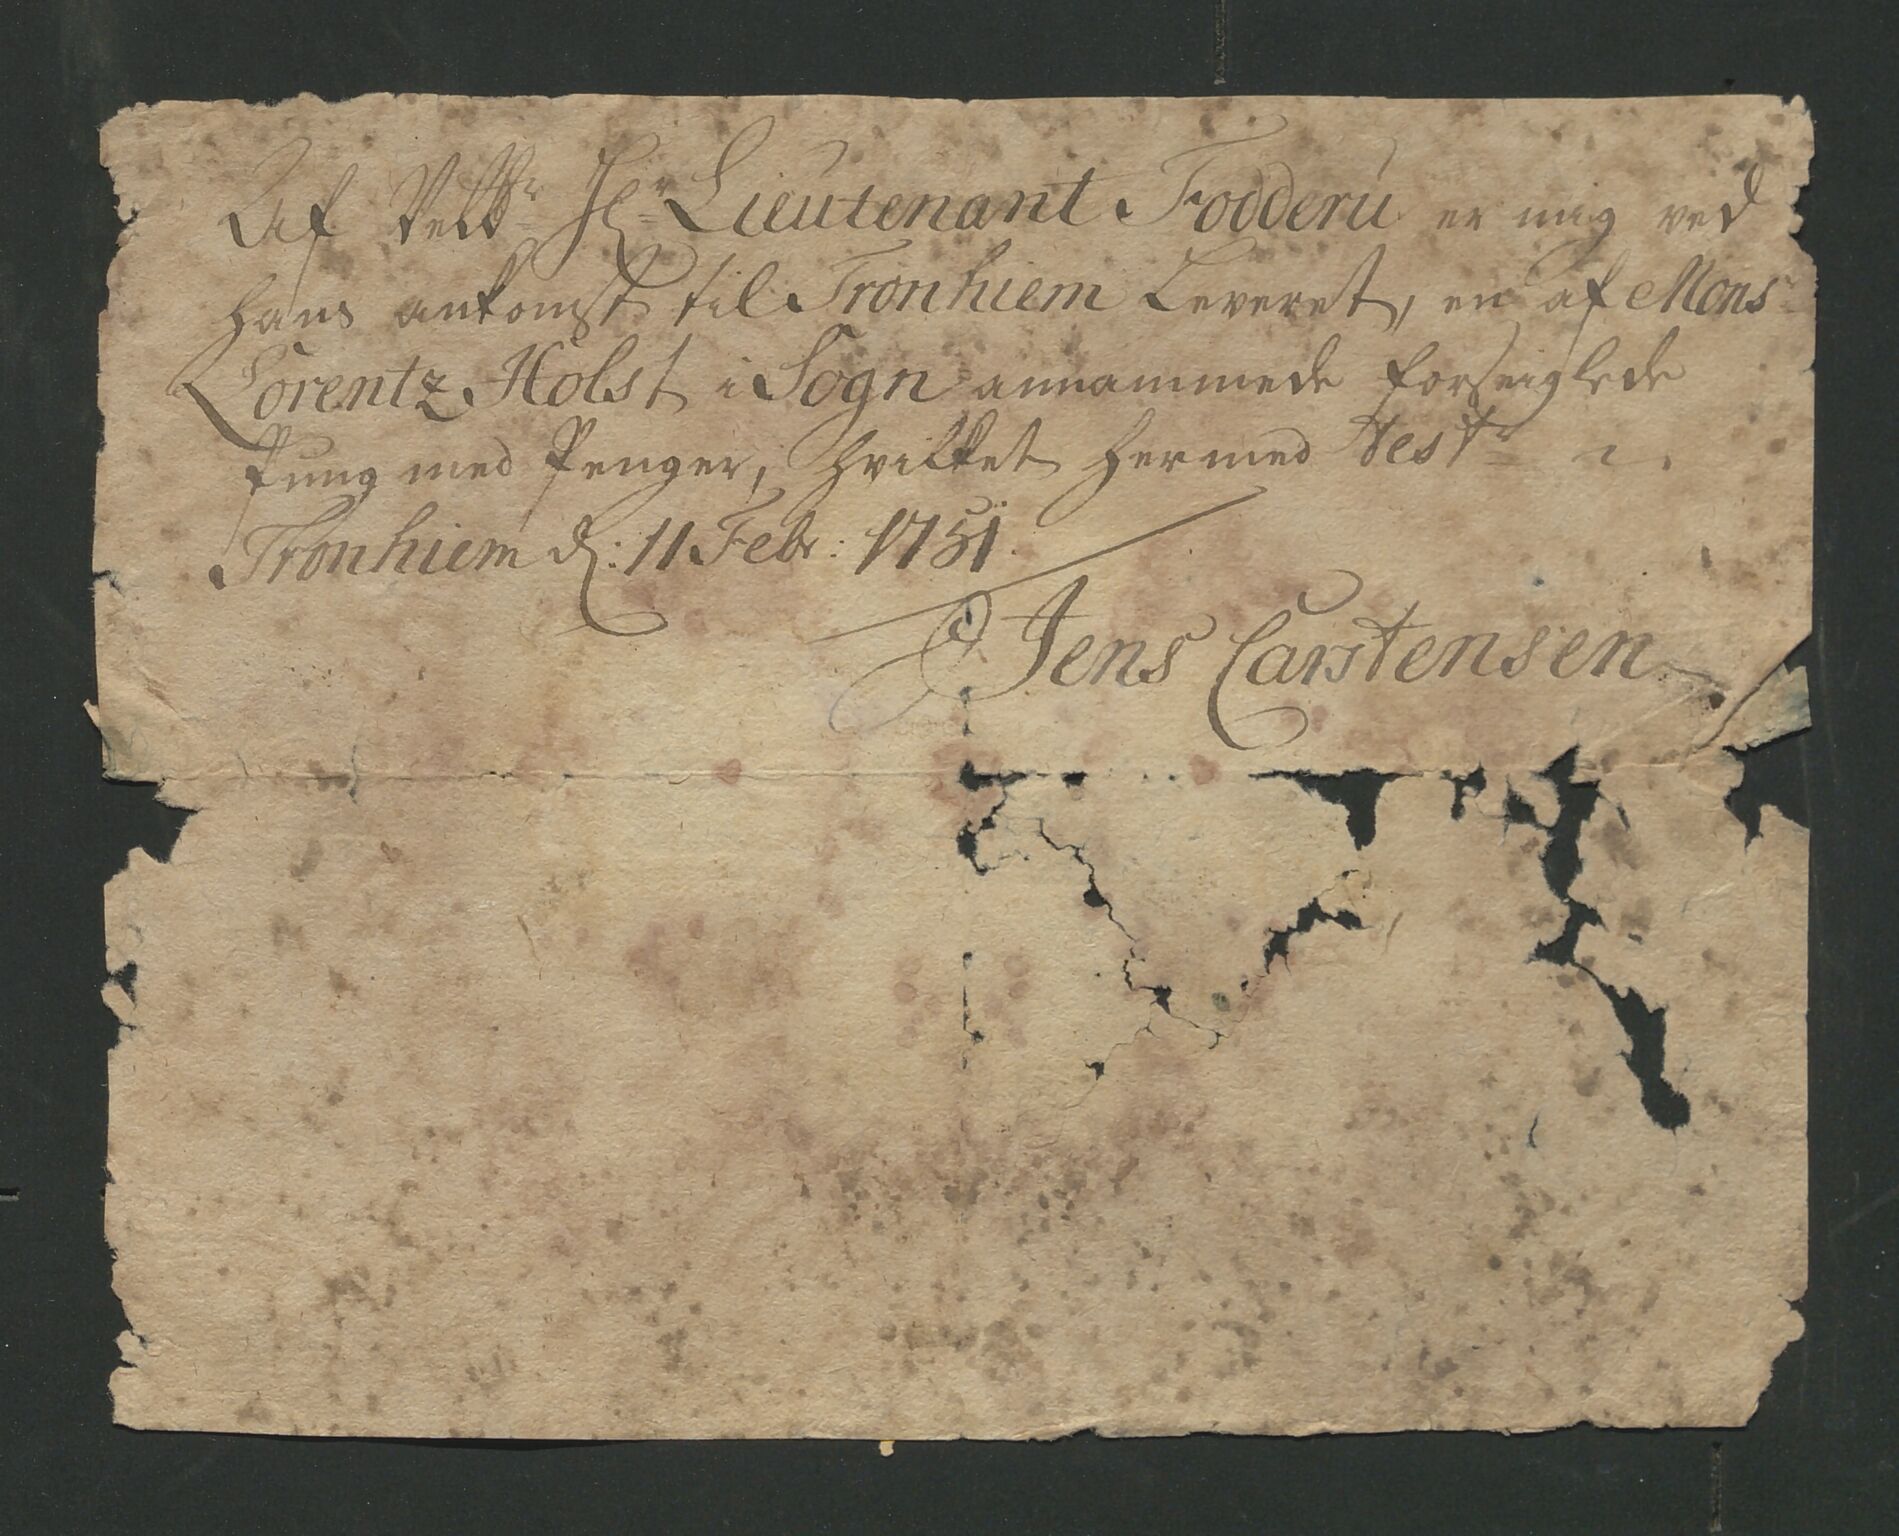 Af Velbr. Hr. Lieutenant Fodderu er mig ved
hans ankomst til Tronhiem Leveret, en af Mons
Lorentz Holst i Sogn annammede forseiglede
Pung med Penger, hvilket hermed test
Tronhiem d: 11 Febr: 1751
Jens Carstensen